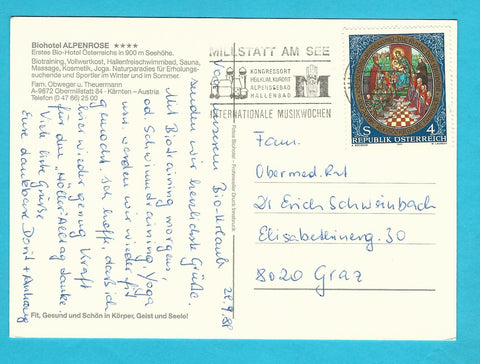 Biohotel ALPENROSE ★★★★
Erstes Bio-Hotel Österreichs in 900 m Seehöhe.
Biotraining, Vollwertkost, Hallenfreischwimmbad, Sauna,
Massage, Kosmetik, Joga. Naturparadies für Erholung-
suchende und Sportler im Winter und im Sommer.
Fam. Obweger u. Theuermann
A-9872 Obermillstatt 84 · Kärnten – Austria
Telefon (0 47 66) 25 00
28.9.88
Von unserem Bio-Urlaub
senden wir herzlichste Grüße.
Mit Biotraining morgens,
Schwimmtraining, Yoga
usw. werden wir wieder fit
gemacht. Ich hoffe, daß ich
wieder genug Kraft
für den "Höller" Alltag tanke.
Viele liebe Grüße
Eure dankbare Dorit + Anhang
Fit, Gesund und Schön in Körper, Geist und Seele!
MILLSTATT AM SEE
KONGRESSORT
HEILKLIM. KURORT
ALPENSEEBAD
HALLENBAD
INTERNATIONALE MUSIKWOCHEN
S 4
REPUBLIK ÖSTERREICH
Fam.
Obermed. Rat
Dr Erich Schweinbach
Elisabethinerg. 30
8020 Graz